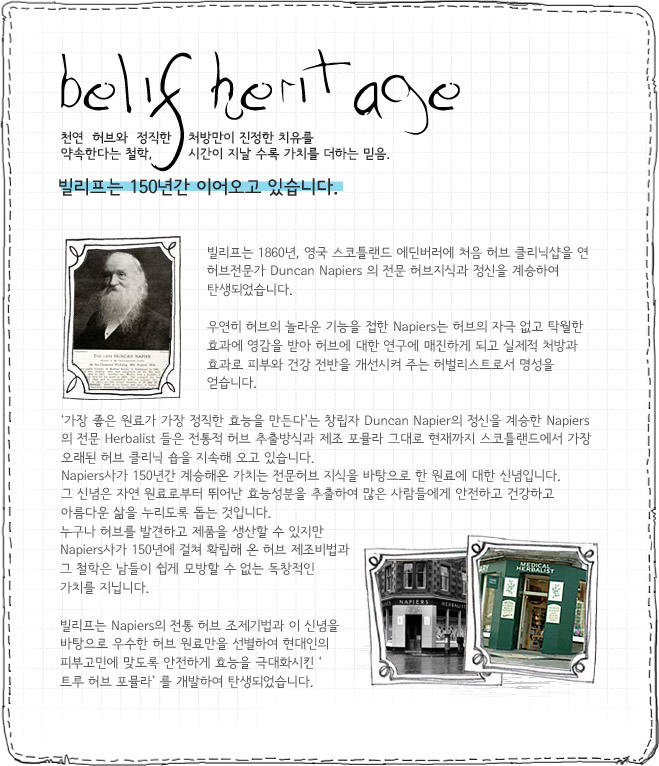 belif heritage
천연 허브와 정직한 처방만이 진정한 치유를
약속한다는 철학, 시간이 지날 수록 가치를 더하는 믿음.
빌리프는 150년간 이어오고 있습니다.
빌리프는 1860년, 영국 스코틀랜드 에딘버러에 처음 허브 클리닉샵을 연
허브전문가 Duncan Napiers 의 전문 허브지식과 정신을 계승하여
탄생되었습니다.
우연히 허브의 놀라운 기능을 접한 Napiers는 허브의 자극 없고 탁월한
효과에 영감을 받아 허브에 대한 연구에 매진하게 되고 실제적 처방과
효과로 피부와 건강 전반을 개선시켜 주는 허벌리스트로서 명성을
얻습니다.
THE LATE DUNCAN NAPIER
‘가장 좋은 원료가 가장 정직한 효능을 만든다’는 창립자 Duncan Napier의 정신을 계승한 Napiers
의 전문 Herbalist 들은 전통적 허브 추출방식과 제조 포뮬라 그대로 현재까지 스코틀랜드에서 가장
오래된 허브 클리닉 숍을 지속해 오고 있습니다.
Napiers사가 150년간 계승해온 가치는 전문허브 지식을 바탕으로 한 원료에 대한 신념입니다.
그 신념은 자연 원료로부터 뛰어난 효능성분을 추출하여 많은 사람들에게 안전하고 건강하고
아름다운 삶을 누리도록 돕는 것입니다.
누구나 허브를 발견하고 제품을 생산할 수 있지만
Napiers사가 150년에 걸쳐 확립해 온 허브 제조비법과
그 철학은 남들이 쉽게 모방할 수 없는 독창적인
가치를 지닙니다.
빌리프는 Napiers의 전통 허브 조제기법과 이 신념을
바탕으로 우수한 허브 원료만을 선별하여 현대인의
피부고민에 맞도록 안전하게 효능을 극대화시킨 ‘
트루 허브 포뮬라’ 를 개발하여 탄생되었습니다.
NAPIERS HERBALIS
ARY MEDICAL
HERBALIST